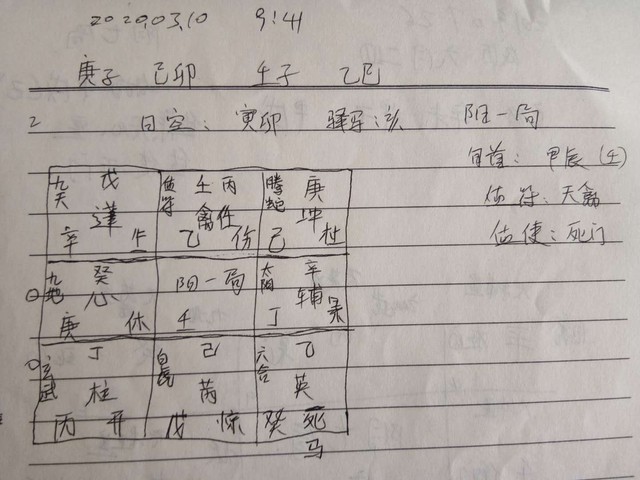 2020.03.10 9:41
庚子 己卯 壬子 乙巳
2 日空：寅卯 驿马：亥 阳一局
旬首：甲辰（壬）
值符：天禽
值使：死门
九天 戊 值符 壬 丙 腾蛇 庚
蓬 禽任 冲
辛 生 乙 伤 己 杜
九地 癸 阳一局 太阴 辛
心 辅
庚 休 壬 丁 景
玄武 丁 白虎 己 六合 乙
柱 芮 英
丙 开 戊 惊 癸 死
马